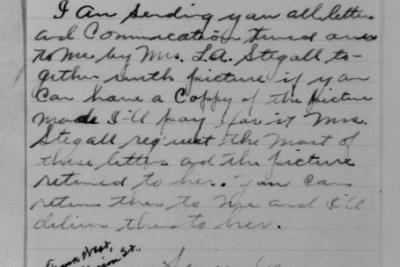 I Am sending you all letters
and Communication turned over
to me by Mrs. L.A. Stegall to-
gether with picture if you
Can have a Copy of the picture
made I'll pay for it Mrs.
Stegall request the most of
these letters and the picture
returned to her. You can
return them to me and I'll
deliver them to her.
West,
St.,